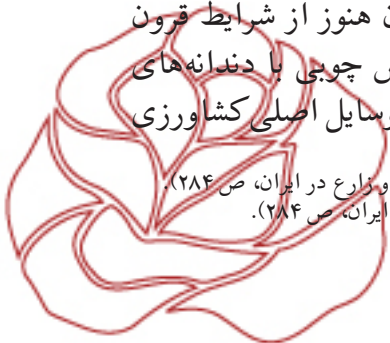 هنوز از شرایط قرون
چوبی با دندانه‌های
وسایل اصلی کشاورزی
و زارع در ایران، ص ۲۸۴).
ایران، ص ۲۸۴).